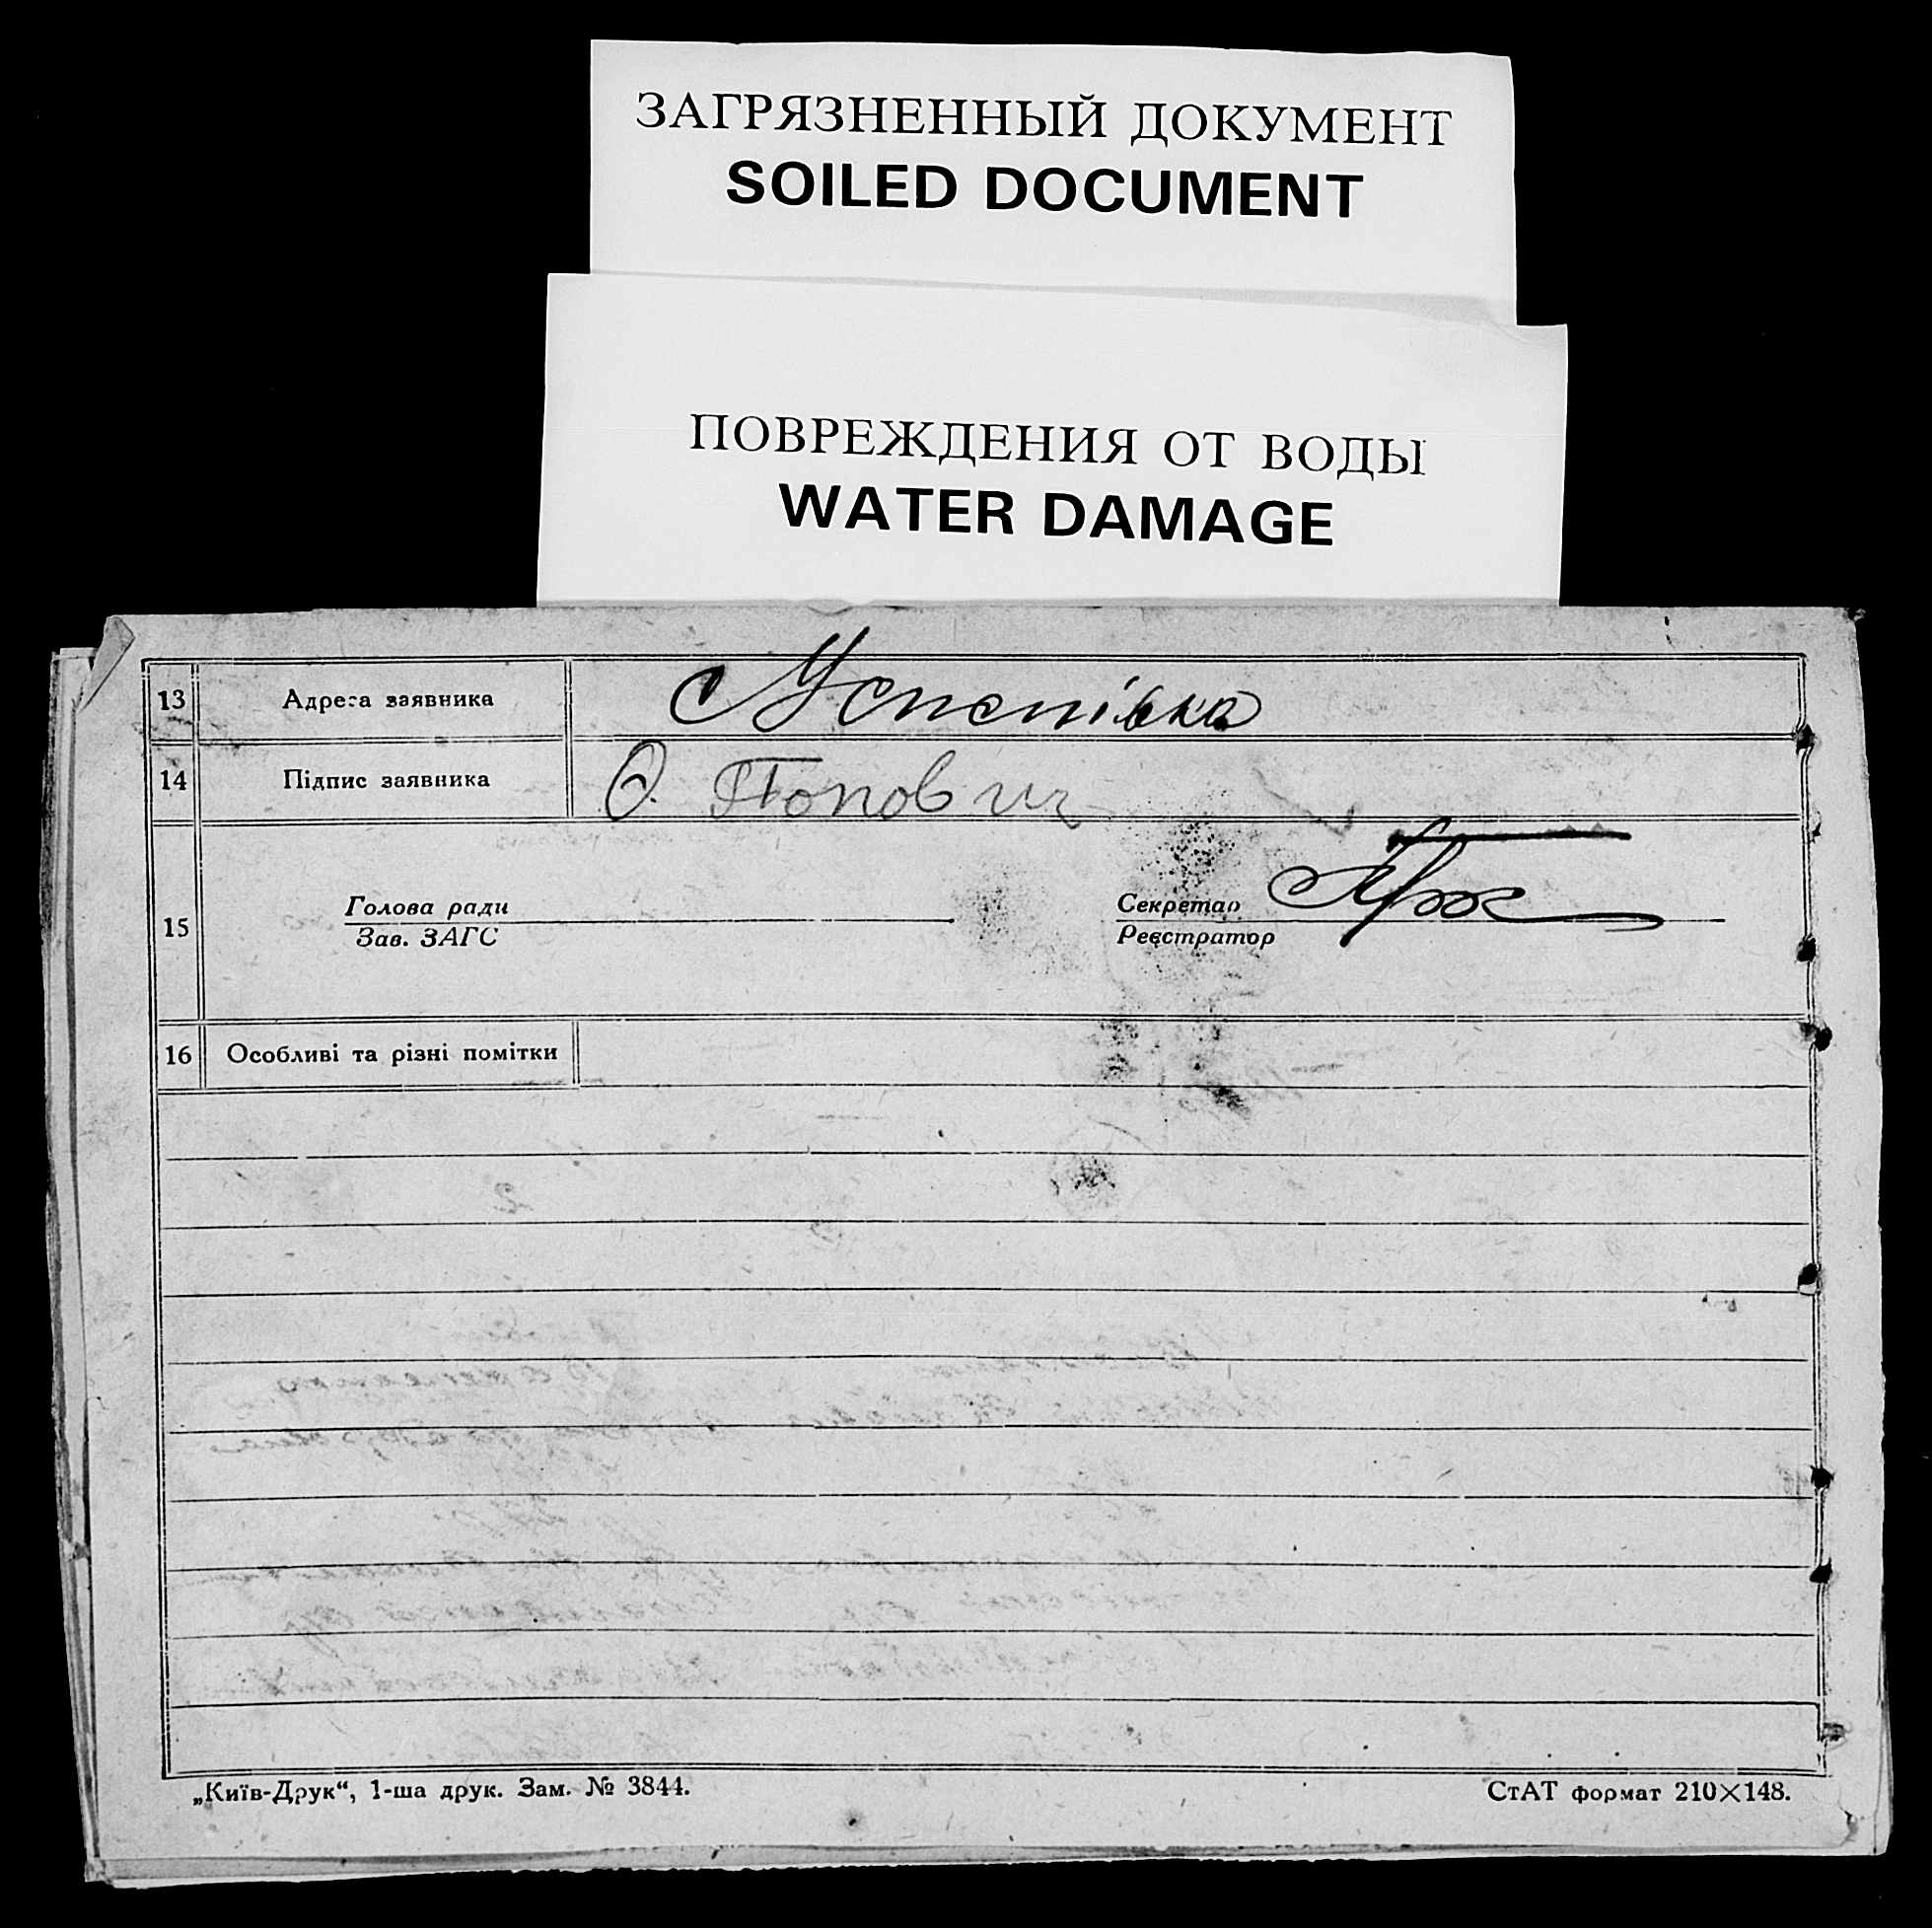 ЗАГРЯЗНЕННЫЙ ДОКУМЕНТ
SOILED DOCUMENT
ПОВРЕЖДЕНИЯ ОТ ВОДЫ
WATER DAMAGE
13 Адреса заявника с
14 Підпис заявника О. Попович
15 Голова ради Секретар
Зав. ЗАГС Реєстратор
16 Особливі та різні помітки
„Київ-Друк“, 1-ша друк. Зам. № 3844. СтАТ формат 210×148.